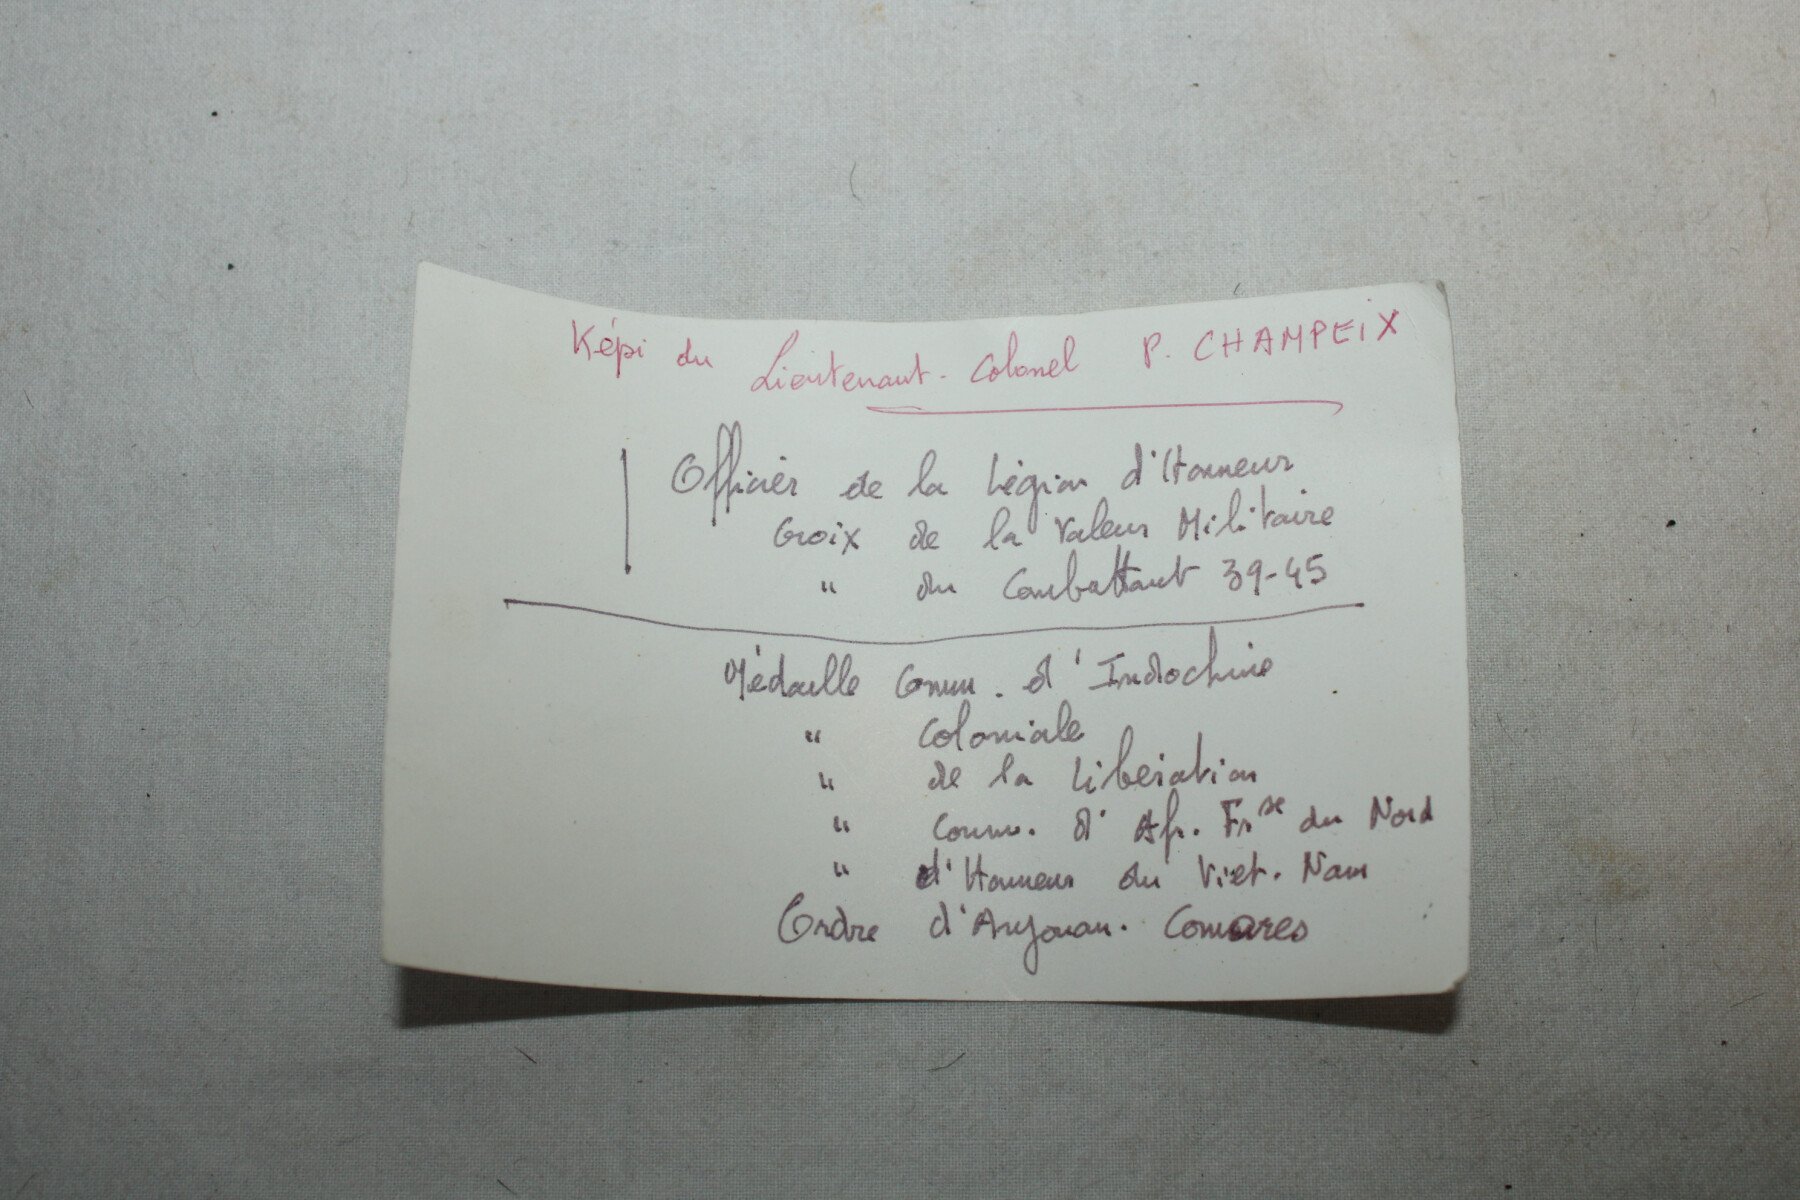 Képi du Lieutenant-Colonel P. CHAMPEIX
Officier de la Légion d'Honneur
Croix de la Valeur Militaire
" du Combattant 39-45
Médaille Comm. d'Indochine
" Coloniale
" de la Libération
" Comm. d'Afr. Frse du Nord
" d'Honneur du Viet-Nam
Ordre d'Anjouan. Comores